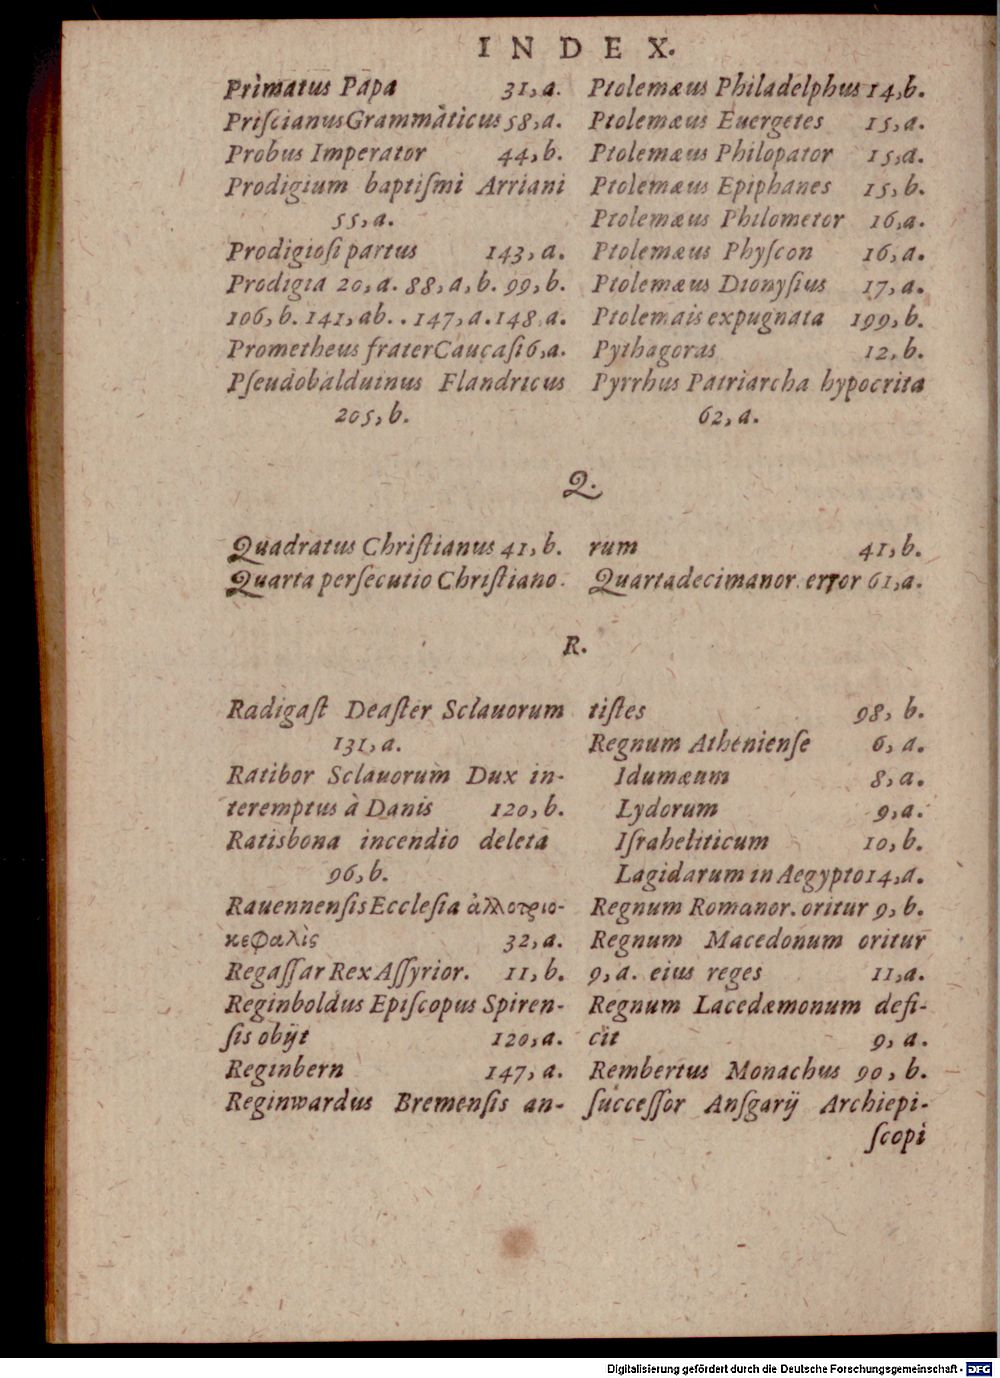 INDEX.
Primatus Papa 31,a.
PriſcianusGrammaticus 58,a.
Probus Imperator 44,b.
Prodigium baptiſmi Arriani
55,a.
Prodigioſi partus 143,a.
Prodigia 20,a. 88,a,b. 99,b.
106,b. 141,ab.. 147,a. 148,a.
Prometheus frater Caucaſi 6,a.
Pſeudobalduinus Flandricus
205,b.
Ptolemæus Philadelphus 14,b.
Ptolemæus Euergetes 15,a.
Ptolemæus Philopator 15,a.
Ptolemæus Epiphanes 15,b.
Ptolemæus Philometor 16,a.
Ptolemæus Phyſcon 16,a.
Ptolemæus Dionyſius 17,a.
Ptolemais expugnata 199,b.
Pythagoras 12,b.
Pyrrhus Patriarcha hypocrita
62,a.
Q.
Quadratus Chriſtianus 41,b.
Quarta perſecutio Chriſtiano-
rum 41,b.
Quartadecimanor. error 61,a.
R.
Radigaſt Deaſter Sclauorum
131,a.
Ratibor Sclauorum Dux in-
teremptus à Danis 120,b.
Ratisbona incendio deleta
96,b.
Rauennenſis Eccleſia ἀλλοτριο-
κεφαλὶς 32,a.
Regaſſar Rex Aſſyrior. 11,b.
Reginboldus Epiſcopus Spiren-
ſis obijt 120,a.
Reginbern 147,a.
Reginwardus Bremenſis an-
tiſtes 98,b.
Regnum Athenienſe 6,a.
Idumæum 8,a.
Lydorum 9,a.
Iſraheliticum 10,b.
Lagidarum in Aegypto 14,a.
Regnum Romanor. oritur 9,b.
Regnum Macedonum oritur
9,a. eius reges 11,a.
Regnum Lacedæmonum defi-
cit 9,a.
Rembertus Monachus 90,b.
ſucceſſor Anſgarij Archiepi-
ſcopi
Digitalisierung gefördert durch die Deutsche Forschungsgemeinschaft - DFG